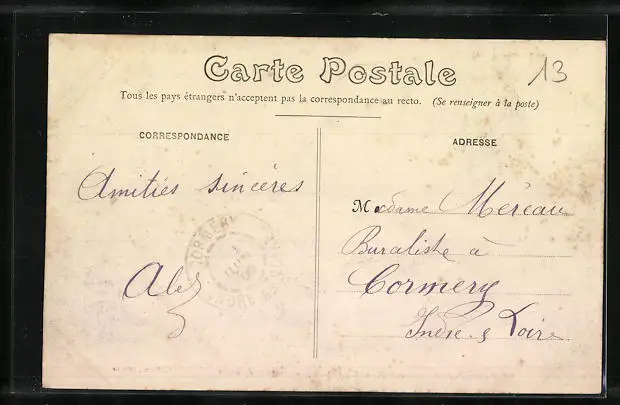 Carte Postale
13
Tous les pays étrangers n'acceptent pas la correspondance au recto. (Se renseigner à la poste)
CORRESPONDANCE
Amitiés sincères
ADRESSE
Madame Méreau
Buraliste à
Cormery
Indre & Loire
CORMERY
INDRE ET LOIRE